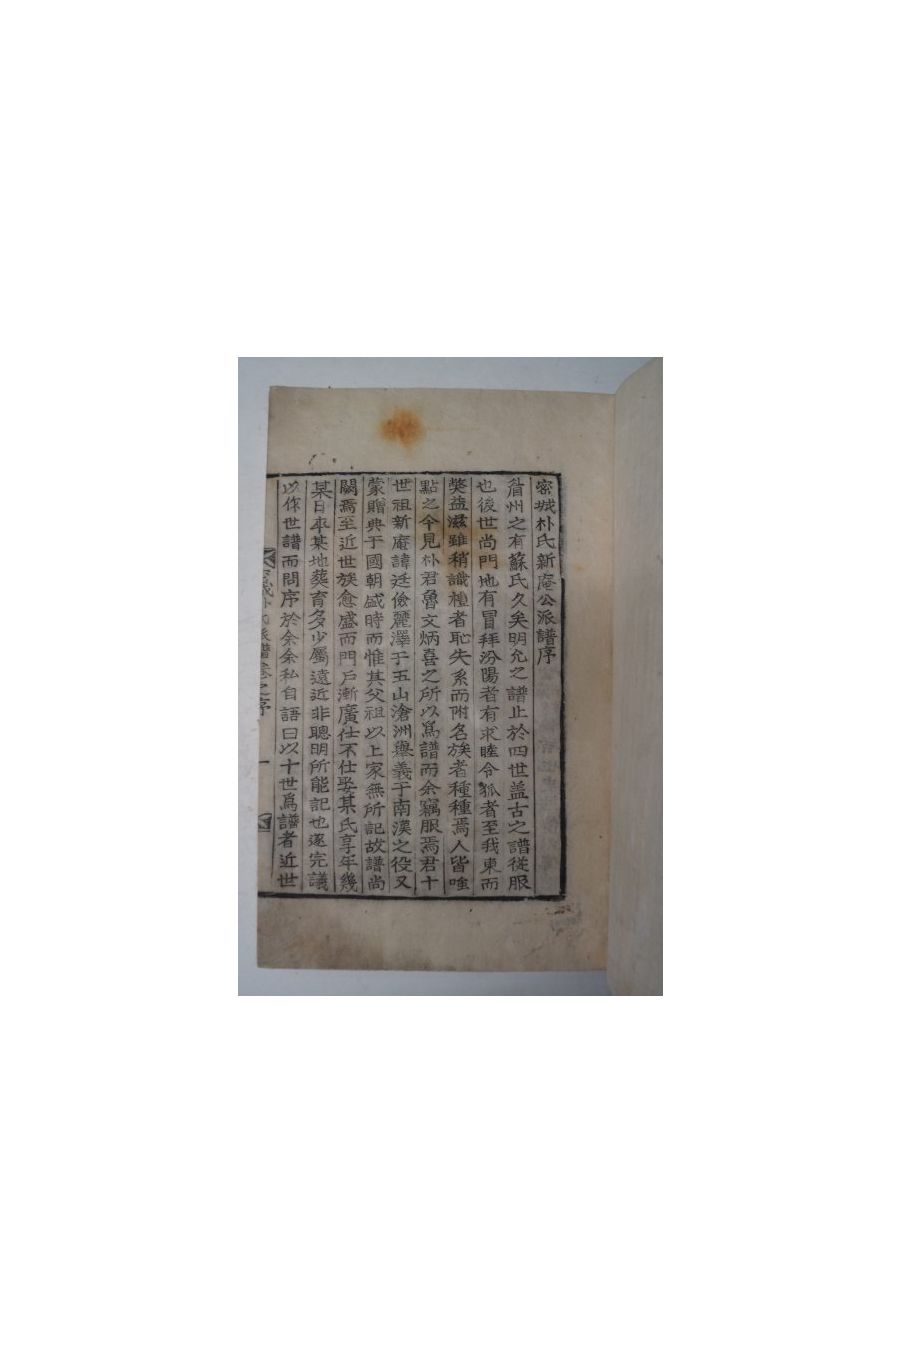 密城朴氏新庵公派譜序
眉州之有蘇氏久矣明允之譜止於四世盖古之譜從服
也後世尚門地有冒拜汾陽者有求睦令狐者至我東而
獘益滋雖稍識種者恥失系而附名族者種種焉人皆唫
點之今見朴君魯文炳喜之所以爲譜而余竊服焉君十
世祖新庵諱廷儉麗澤于五山滄洲擧義于南漢之役又
蒙贈典于國朝盛時而惟其父祖以上家無所記故譜尚
闕焉至近世族愈盛而門戶漸廣仕不仕娶某氏享年幾
某日卒某地葬育多少屬遠近非聰明所能記也遂完議
以作世譜而問序於余余私自語曰以十世爲譜者近世
朴氏派譜卷之序
一